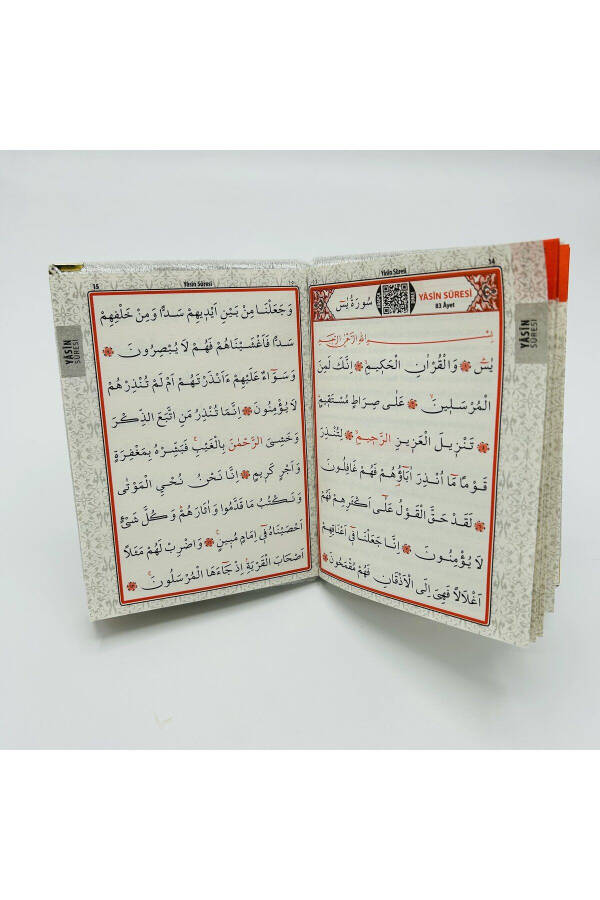 14
Yâsîn Sûresi
YÂSÎN SÛRESİ
83 Âyet
سُورَةُ يٰسٓ
بِسْمِ اللّٰهِ الرَّحْمٰنِ الرَّحِيمِ
يٰسٓ وَالْقُرْاٰنِ الْحَكِيمِ اِنَّكَ لَمِنَ
الْمُرْسَلِينَ عَلٰى صِرَاطٍ مُسْتَقِيمٍ
تَنْزِيلَ الْعَزِيزِ الرَّحِيمِ لِتُنْذِرَ
قَوْمًا مَٓا اُنْذِرَ اٰبَٓاؤُ۬هُمْ فَهُمْ غَافِلُونَ
لَقَدْ حَقَّ الْقَوْلُ عَلٰٓى اَكْثَرِهِمْ فَهُمْ
لَا يُؤْمِنُونَ اِنَّا جَعَلْنَا فِٓي اَعْنَاقِهِمْ
اَغْلَالًا فَهِيَ اِلَى الْاَذْقَانِ فَهُمْ مُقْمَحُونَ
YÂSÎN
SÛRESİ
15
Yâsîn Sûresi
وَجَعَلْنَا مِنْ بَيْنِ اَيْدِيهِمْ سَدًّا وَمِنْ خَلْفِهِمْ
سَدًّا فَاَغْشَيْنَاهُمْ فَهُمْ لَا يُبْصِرُونَ
وَسَوَٓاءٌ عَلَيْهِمْ ءَاَنْذَرْتَهُمْ اَمْ لَمْ تُنْذِرْهُمْ
لَا يُؤْمِنُونَ اِنَّمَا تُنْذِرُ مَنِ اتَّبَعَ الذِّكْرَ
وَخَشِيَ الرَّحْمٰنَ بِالْغَيْبِ فَبَشِّرْهُ بِمَغْفِرَةٍ
وَاَجْرٍ كَرِيمٍ اِنَّا نَحْنُ نُحْيِ الْمَوْتٰى
وَنَكْتُبُ مَا قَدَّمُوا وَاٰثَارَهُمْ وَكُلَّ شَيْءٍ
اَحْصَيْنَاهُ فِٓي اِمَامٍ مُبِينٍ وَاضْرِبْ لَهُمْ مَثَلًا
اَصْحَابَ الْقَرْيَةِ اِذْ جَٓاءَهَا الْمُرْسَلُونَ
YÂSÎN
SÛRESİ